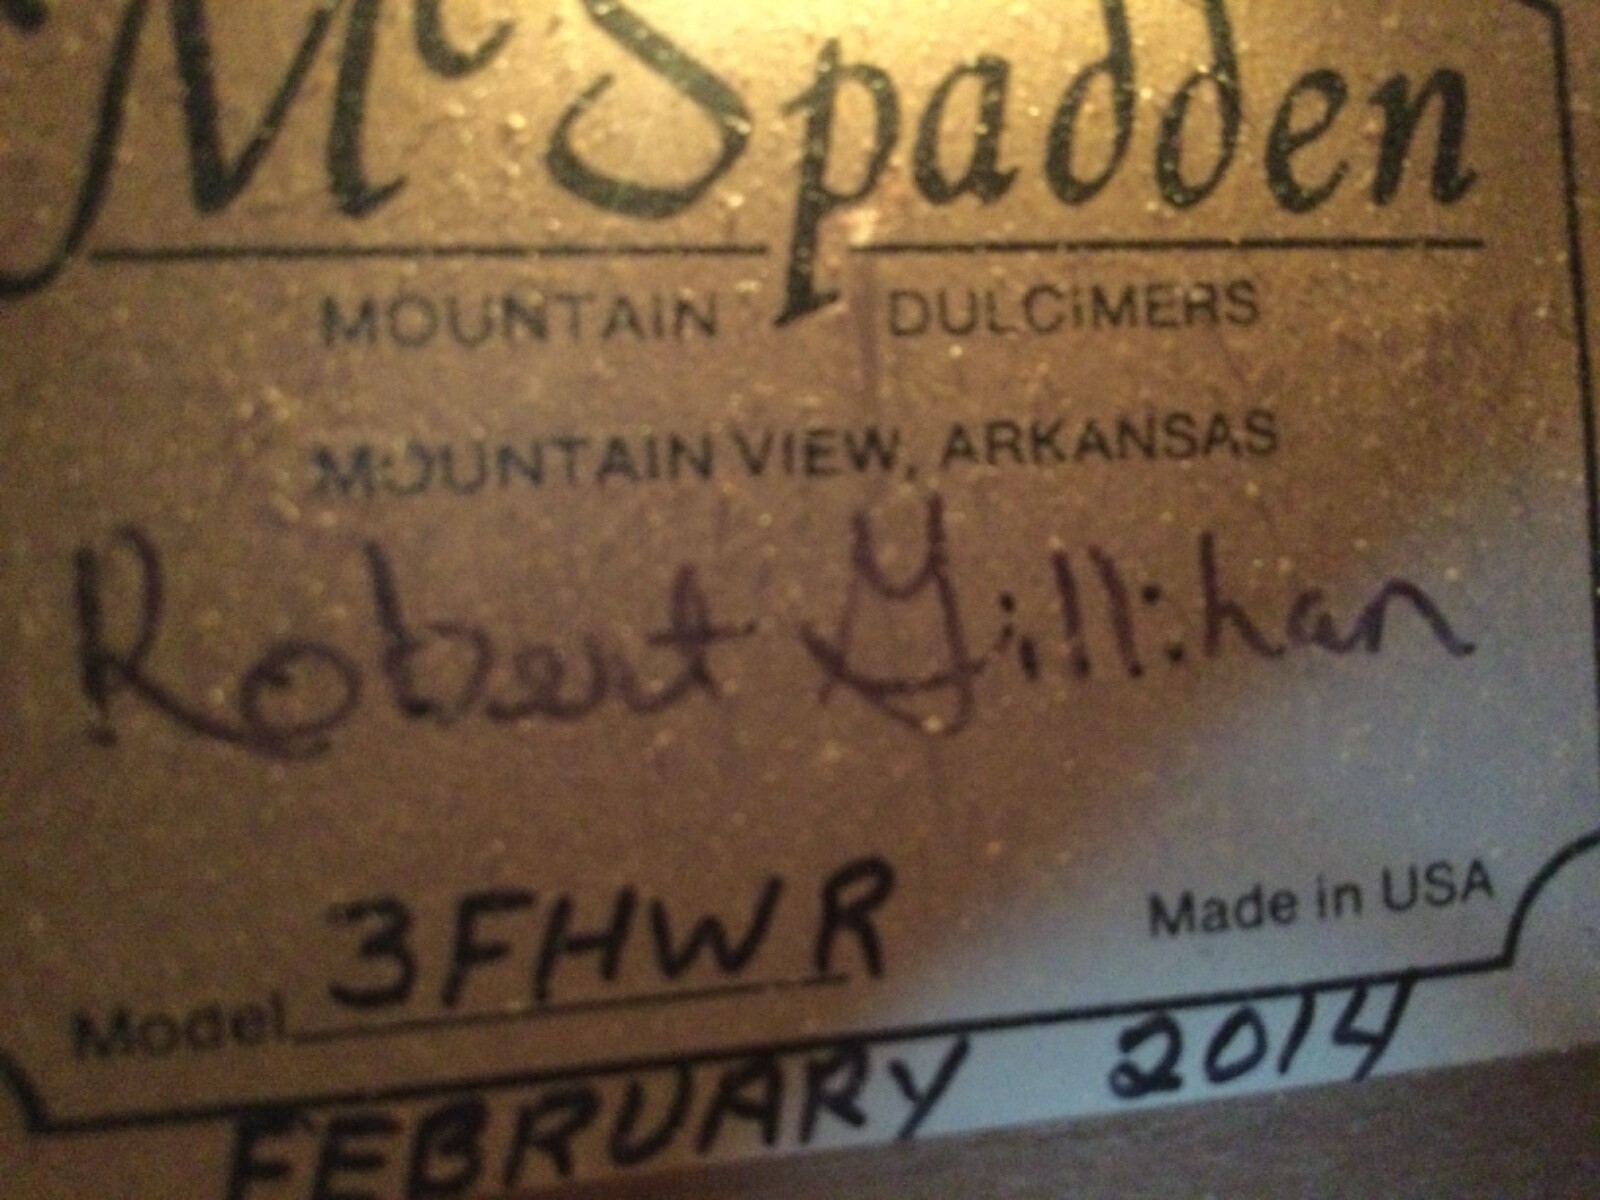 McSpadden
MOUNTAIN DULCIMERS
MOUNTAIN VIEW, ARKANSAS
Robert Gillihan
Model 3FHWR Made in USA
FEBRUARY 2014